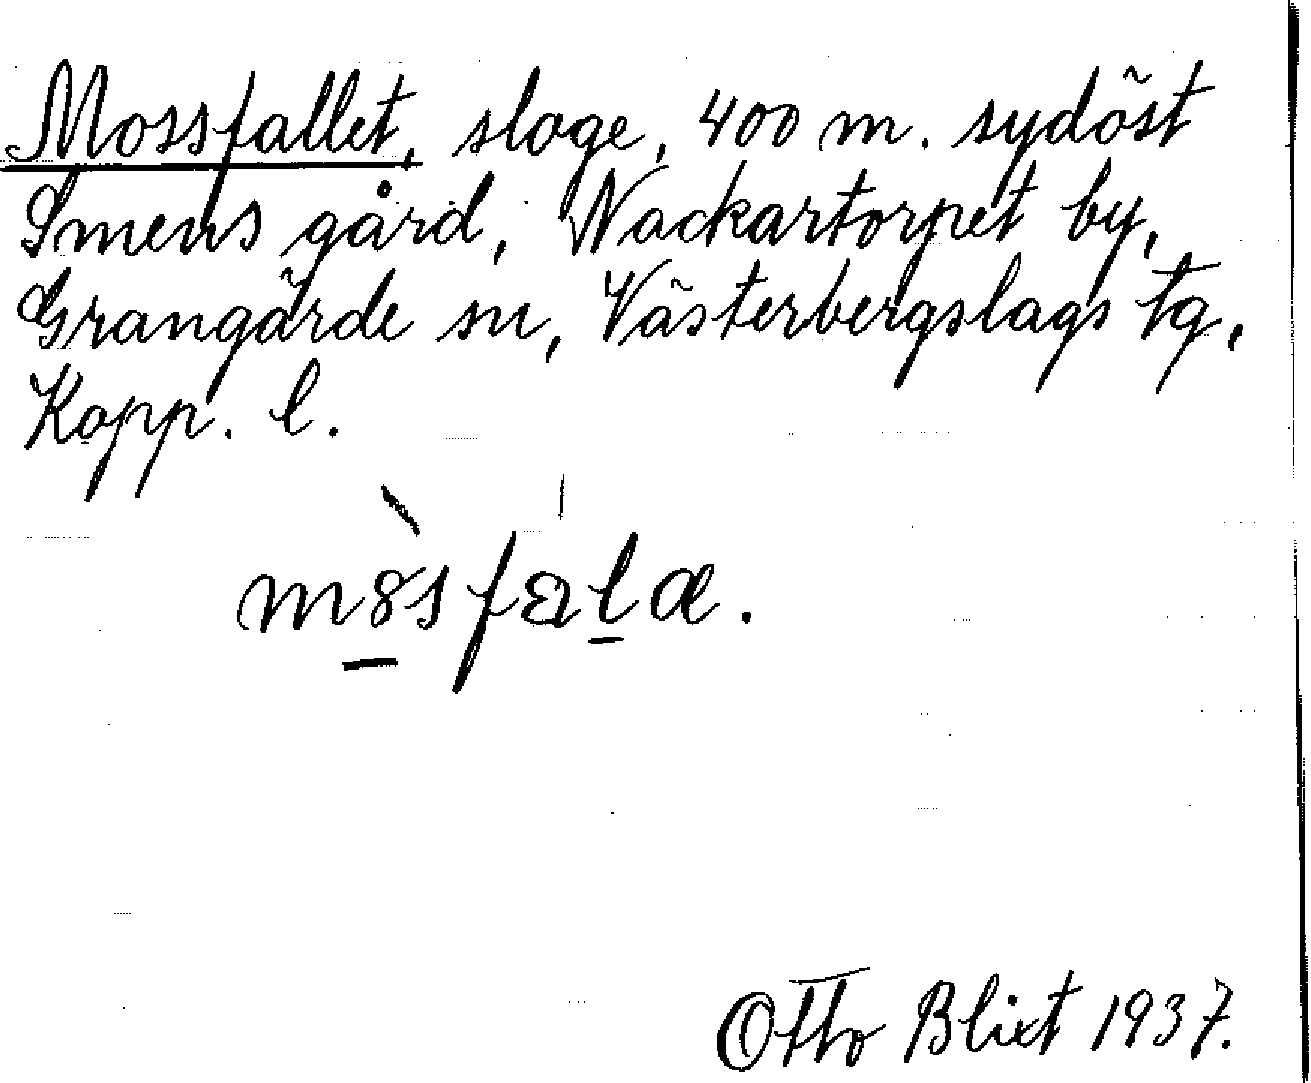 Mossfallet, sloge, 400 m. sydöst
Smens gård, Nackartorpet by,
Grangärde sn, Västerbergslags tg,
Kopp. l.
Otto Blixt 1937.